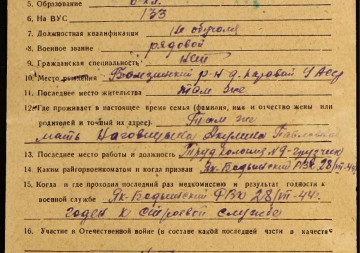 5. Образование
6. На ВУС 133
7. Должностная квалификация не обучен
8. Военное звание рядовой
9. Гражданская специальность нет
10. Место рождения р-н д. УАССР
11. Последнее место жительства там же
12. Где проживает в настоящее время семья (фамилия, имя и отчество жены или
родителей и точный их адрес). Там же
мать Наговицына Павловна
13. Последнее место работы и должность Труд колония №9 - грузчик
14. Каким райгорвоенкоматом и когда призван Як-Бодьинский РВК 28/VII-44г
15. Когда и где проходил последний раз медкомиссию и результат годности к
военной службе Як-Бодьинский РВК 28/VII-44г.
годен к строевой службе
16. Участие в Отечественной войне (в составе какой последней части и качестве